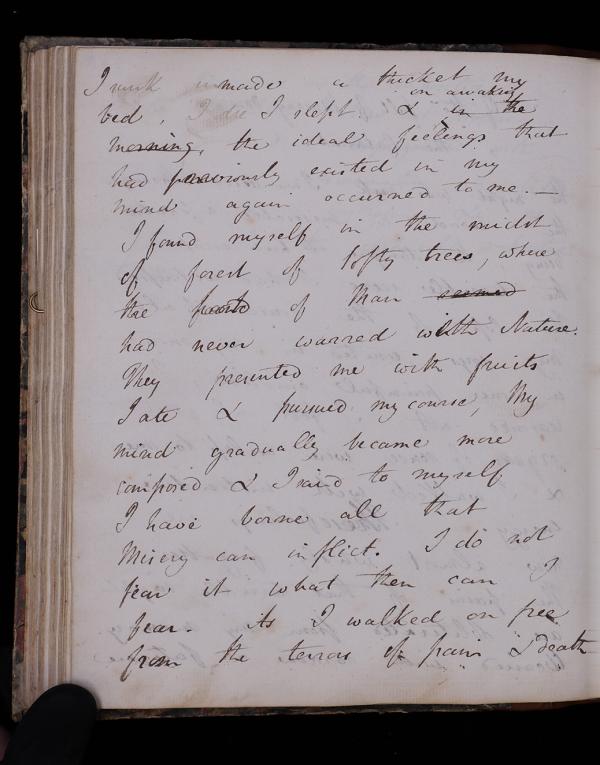 I made a thicket my
on awaking
bed, I slept. & in the
morning, the ideal feelings that
had previously existed in my
mind again occurred to me. —
I found myself in the midst
of forest of lofty trees, where
the foot of Man seemed
had never warred with Nature.
They presented me with fruits
I ate & pursued my course, My
mind gradually became more
composed & I said to myself
I have borne all that
Misery can inflict. I do not
fear it what then can I
fear. As I walked on free
from the terrors of pain & death